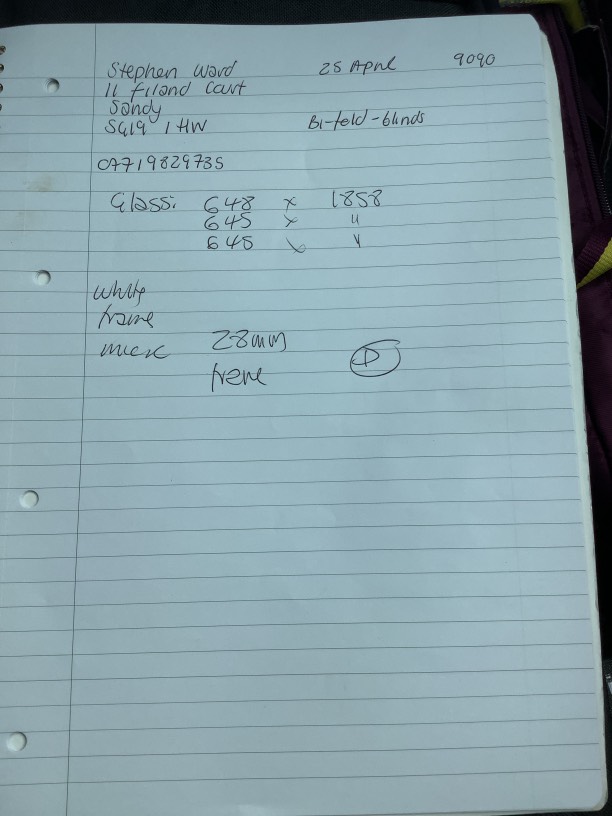 Stephen Ward 25 April 9090
11 Filand Court
Sandy
SG19 1HW Bi-fold-blinds
07719829735
Glass: 648 x 1858
645 x "
645 x "
white
frame
mick 28mm
frame D